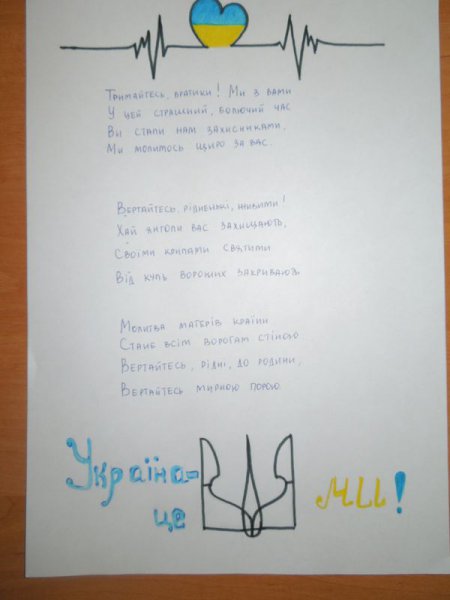 Тримайтесь, братики! Ми з вами
У цей страшний, болючий час
Ви стали нам захисниками,
Ми молитось щиро за вас.
Вертайтесь, рідненькі, живими!
Хай янголи вас захищають,
Своїми крилами святими
Від куль ворожих закривають.
Молитва матерів країни
Стане всім ворогам стіною
Вертайтесь, рідні, до родини,
Вертайтесь мирною порою.
Україна-
це
МИ!